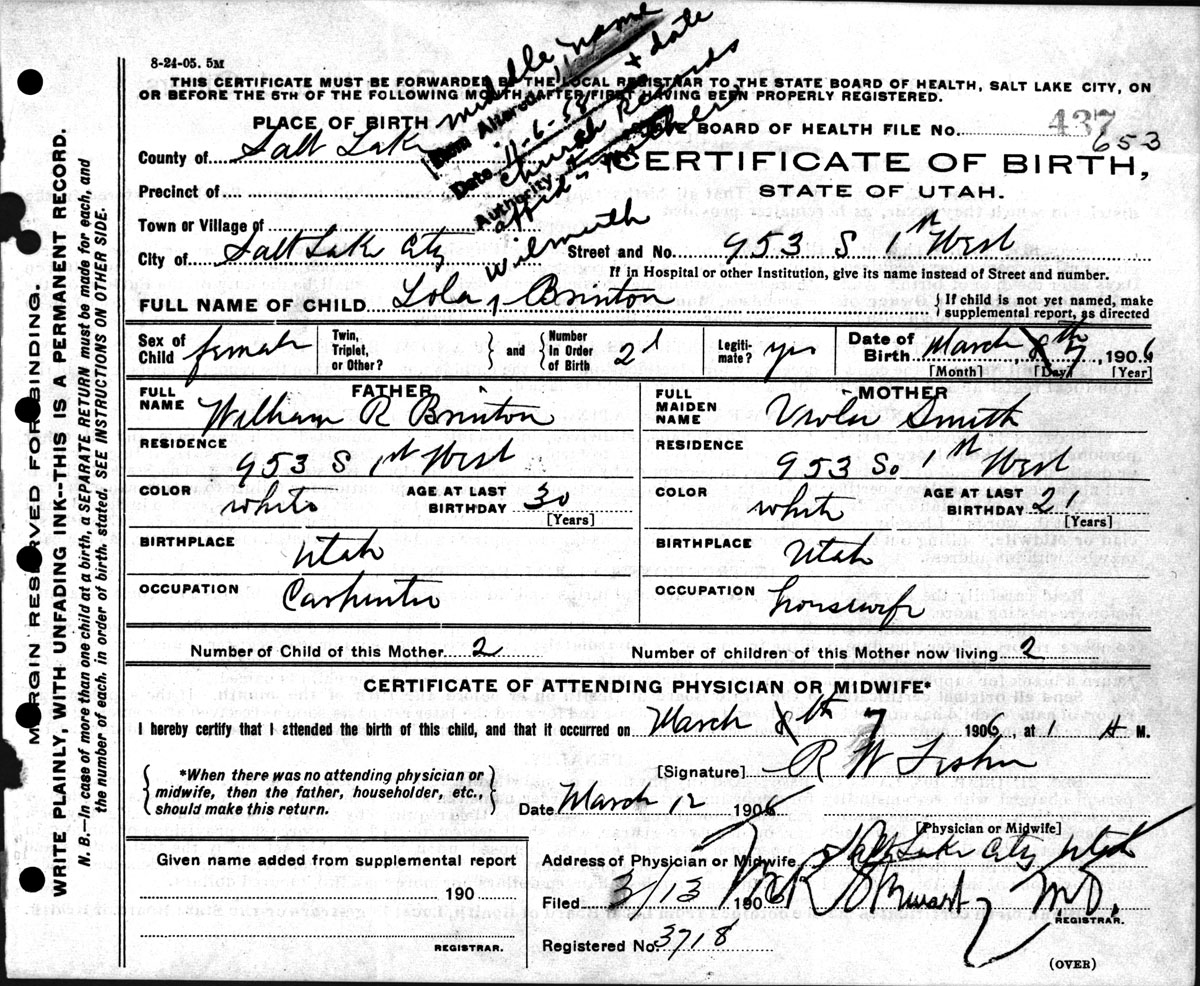 8-24-05. 5M
THIS CERTIFICATE MUST BE FORWARDED BY THE LOCAL REGISTRAR TO THE STATE BOARD OF HEALTH, SALT LAKE CITY, ON
OR BEFORE THE 5TH OF THE FOLLOWING MONTH, AFTER FIRST HAVING BEEN PROPERLY REGISTERED.
middle name
Item Altered
+ date
Date 11-6-58
Church Records
Authority +
affid - mothers
PLACE OF BIRTH
STATE BOARD OF HEALTH FILE No. 437
653
County of Salt Lake
CERTIFICATE OF BIRTH,
Precinct of
STATE OF UTAH.
Town or Village of
City of Salt Lake City Street and No. 953 S 1st West
If in Hospital or other Institution, give its name instead of Street and number.
Wilmuth
FULL NAME OF CHILD Lola Brinton { If child is not yet named, make
supplemental report, as directed
Sex of Child female Twin, Triplet, or Other? } and { Number In Order of Birth 2d Legiti-mate? yes Date of Birth March 8th 7, 1906
[Month] [Day] [Year]
FATHER MOTHER
FULL NAME William R Brinton FULL MAIDEN NAME Viola Smith
RESIDENCE 953 S 1st West RESIDENCE 953 So 1st West
COLOR white AGE AT LAST BIRTHDAY 30 [Years] COLOR white AGE AT LAST BIRTHDAY 21 [Years]
BIRTHPLACE Utah BIRTHPLACE Utah
OCCUPATION Carpenter OCCUPATION housewife
Number of Child of this Mother 2 Number of children of this Mother now living 2
CERTIFICATE OF ATTENDING PHYSICIAN OR MIDWIFE*
I hereby certify that I attended the birth of this child, and that it occurred on March 8th 7 1906 at 1 A M.
{ *When there was no attending physician or
midwife, then the father, householder, etc.,
should make this return. }
[Signature] R W Fisher
Date March 12 1906
[Physician or Midwife]
Given name added from supplemental report
190
REGISTRAR.
Address of Physician or Midwife Salt Lake City Utah
Filed 3/13 1906 Stewart M.D.
REGISTRAR.
Registered No. 3718
(OVER)
MARGIN RESERVED FOR BINDING.
WRITE PLAINLY, WITH UNFADING INK--THIS IS A PERMANENT RECORD.
N. B.—In case of more than one child at a birth, a SEPARATE RETURN must be made for each, and
the number of each, in order of birth, stated. SEE INSTRUCTIONS ON OTHER SIDE.